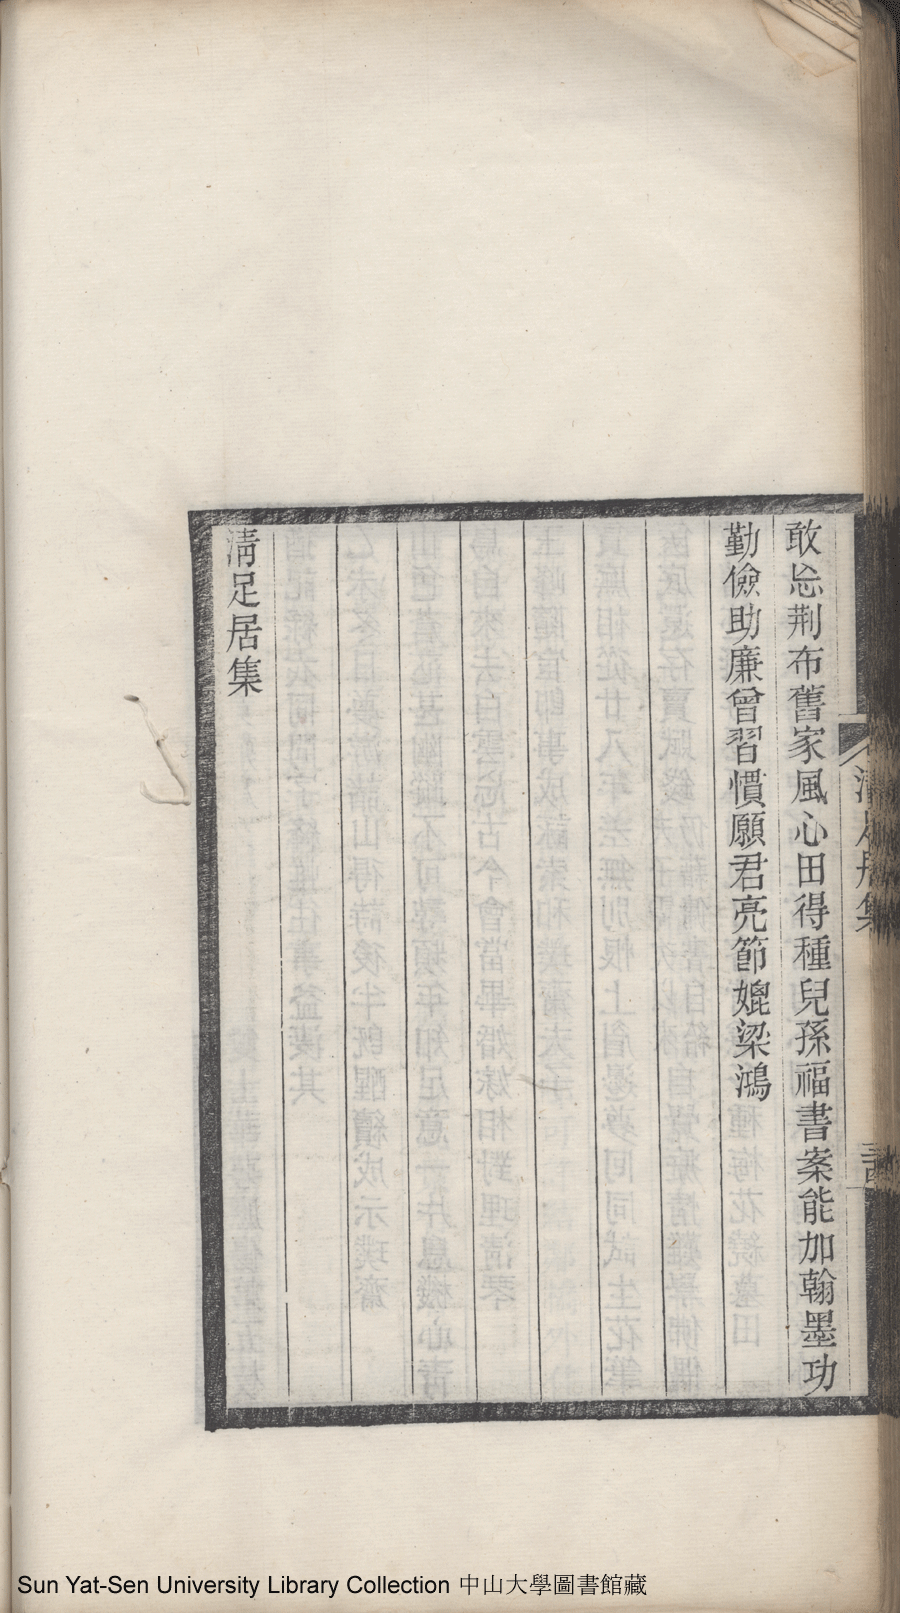 敢忘荆布舊家風心田得種兒孫福書案能加翰墨功
勤儉助廉曾習慣願君亮節媲梁鴻
清足居集
清足居集
三四
Sun Yat-Sen University Library Collection 中山大學圖書館藏